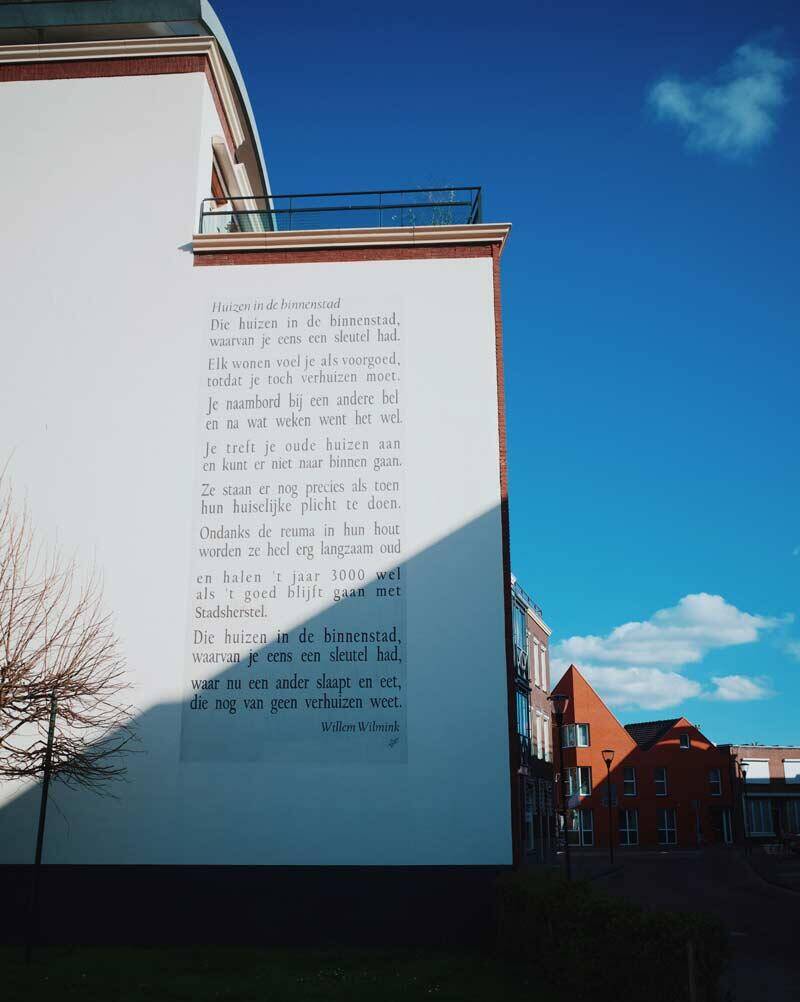 Huizen in de binnenstad
Die huizen in de binnenstad,
waarvan je eens een sleutel had.
Elk wonen voel je als voorgoed,
totdat je toch verhuizen moet.
Je naambord bij een andere bel
en na wat weken went het wel.
Je treft je oude huizen aan
en kunt er niet naar binnen gaan.
Ze staan er nog precies als toen
hun huiselijke plicht te doen.
Ondanks de reuma in hun hout
worden ze heel erg langzaam oud
en halen 't jaar 3000 wel
als 't goed blijft gaan met
Stadsherstel.
Die huizen in de binnenstad,
waarvan je eens een sleutel had,
waar nu een ander slaapt en eet,
die nog van geen verhuizen weet.
Willem Wilmink